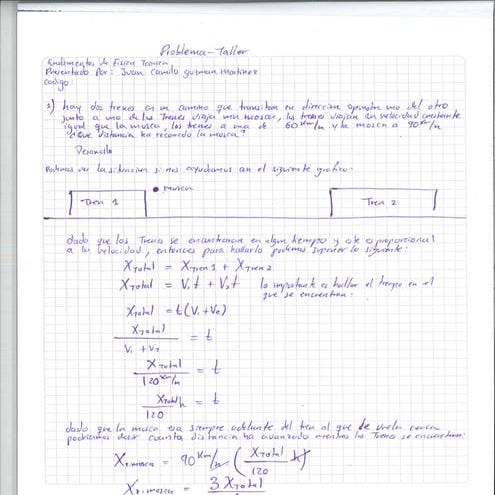 Problema-Taller
Fundamentos de Física Teorica
Presentado Por: Juan Camilo guzman Martinez
codigo:
1) hay dos trenes en un camino que transitan en direccion opuesta uno del otro
junto a uno de los Trenes viaja una mosca, los trenes viajan con velocidad constante
igual que la mosca, los trenes a una de 60 km/h y la mosca a 90 km/h
¿Que distancia ha recorrido la mosca?
Desarrollo
Podemos ver la situacion si nos ayudamos en el siguiente grafico:
• Mosca
Tren 1 Tren 2
dado que los Trenes se encontraran en algun tiempo y este es proporcional
a la velocidad, entonces para hallarlo podemos suponer lo siguiente:
X_Total = X_Tren 1 + X_Tren 2
X_Total = V₁t + V₂t lo importante es hallar el tiempo en el
que se encuentran:
X_Total = t(V₁+V₂)
X_Total / (V₁ + V₂) = t
X_Total / 120 km/h = t
X_Total h / 120 = t
dado que la mosca era siempre adelante del tren al que de vuela cerca
podriamos decir cuanta distancia ha avanzado mientras los Trenes se encuentran:
X_r.mosca = 90 km/h (X_Total / 120 h)
X_r.mosca = 3 X_Total